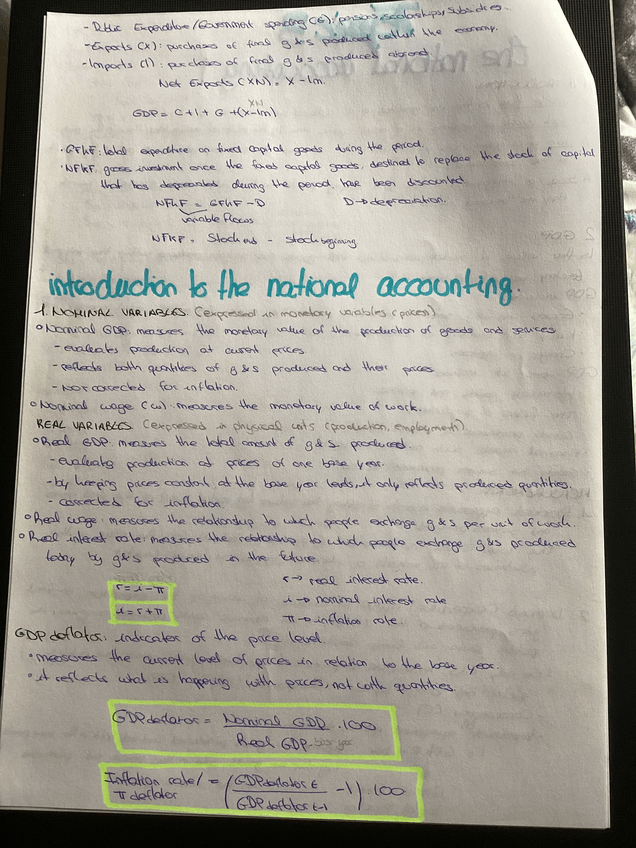 - Public Expenditure/Government spending (G): pensions, scholarships, subsidies...
- Exports (X): purchases of final g&s produced within the economy.
- Imports (I): purchases of final g&s produced abroad.
Net Exports (XN) = X - Im.
XN
GDP = C + I + G + (X-Im)
· GFKF: total expenditure on fixed capital goods during the period.
· NFKF: gross investment once the fixed capital goods, destined to replace the stock of capital
that has depreciated during the period, have been discounted
NFKF = GFKF - D D → depreciation.
variable flows
NFKF = Stock end - stock beginning
introduction to the national accounting.
1. NOMINAL VARIABLES (expressed in monetary variables (prices)
o Nominal GDP: measures the monetary value of the production of goods and services
- evaluates production at current prices
- reflects both quantities of g&s produced and their prices
- Not corrected for inflation.
o Nominal wage (w): measures the monetary value of work.
REAL VARIABLES (expressed in physical units (production, employment))
o Real GDP: measures the total amount of g&s produced.
- evaluates production at prices of one base year.
- by keeping prices constant at the base year levels, it only reflects produced quantities.
- corrected for inflation
o Real wage: measures the relationship to which people exchange g&s per unit of work.
o Real interest rate: measures the relationship to which people exchange g&s produced
today by g&s produced in the future.
r = i - π r → real interest rate.
i = r + π i → nominal interest rate
π → inflation rate.
GDP deflator: indicator of the price level.
· measures the current level of prices in relation to the base year.
· it reflects what is happening with prices, not with quantities.
GDP deflator = Nominal GDP / Real GDP · 100
Inflation rate / π deflator = (GDP deflator t / GDP deflator t-1 - 1) · 100